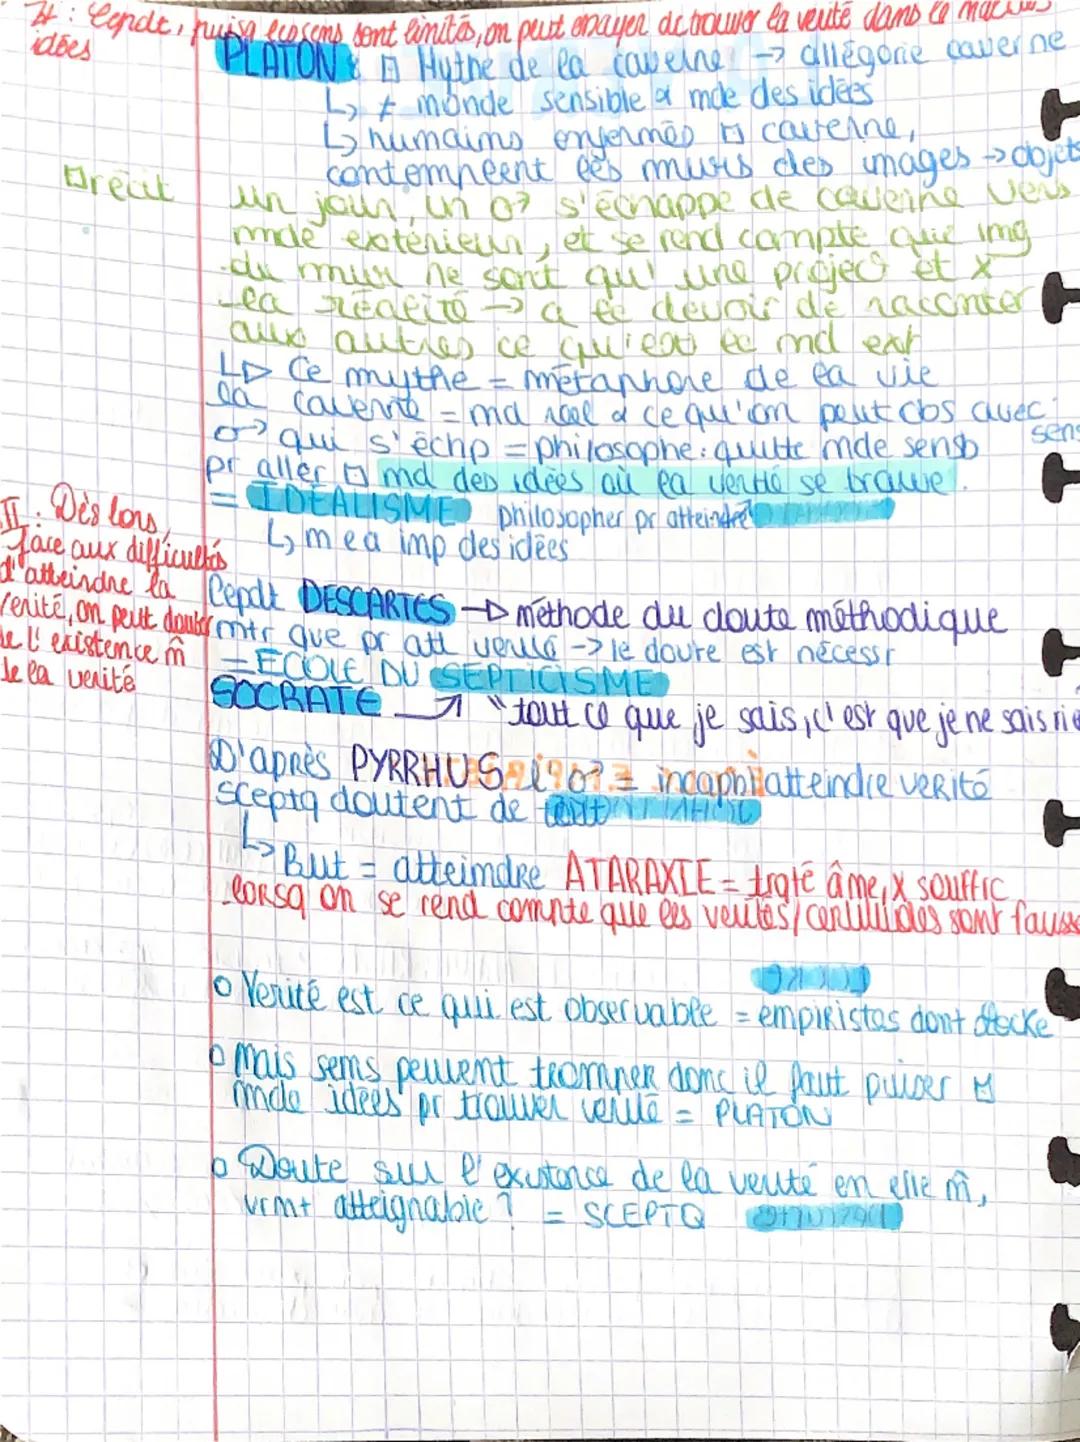 II : Cepdt, puisq les sens sont limités, on peut essayer de trouver la vérité dans le
idées
PLATON : Mythe de la caverne → allégorie caverne
↳ ≠ monde sensible & mde des idées
↳ humains enfermés caverne,
contemplent les murs des images → objets
récit
un jour, un s'échappe de caverne vers
mde extérieur, et se rend compte que img
du mur ne sont qu'une project et X
la réalité → a le devoir de raconter
aux autres ce qu'est le md ext
↳ Ce mythe = métaphore de la vie
la caverne = md réel & ce qu'on peut obs avec sens
qui s'échp = philosophe : quitte mde sensb
pr aller md des idées où la vérité se trouve.
= IDEALISME philosopher pr atteindre
↳ mea imp des idées
II : Dès lors,
face aux difficultés
d'atteindre la
vérité, on peut douter
de l'existence m̂
de la vérité
Cepdt DESCARTES → méthode du doute méthodique
mtr que pr att vérité → le doute est nécessr
= ECOLE DU SEPTICISME
SOCRATE ↗ "tout ce que je sais, c'est que je ne sais rie
D'après PYRRHUS l' = incapbl atteindre vérité
sceptq doutent de tout
↳ But = atteindre ATARAXIE = trqté âme, X souffrc
lorsq on se rend compte que les vérités/certitudes sont fausse
o Verité est ce qui est observable = empiristes dont Locke
o Mais sens peuvent tromper donc il faut puiser
mde idées pr trouver vérité = PLATON
o Doute sur l'existence de la vérité en elle m̂,
vrmt atteignable ? = SCEPTQ